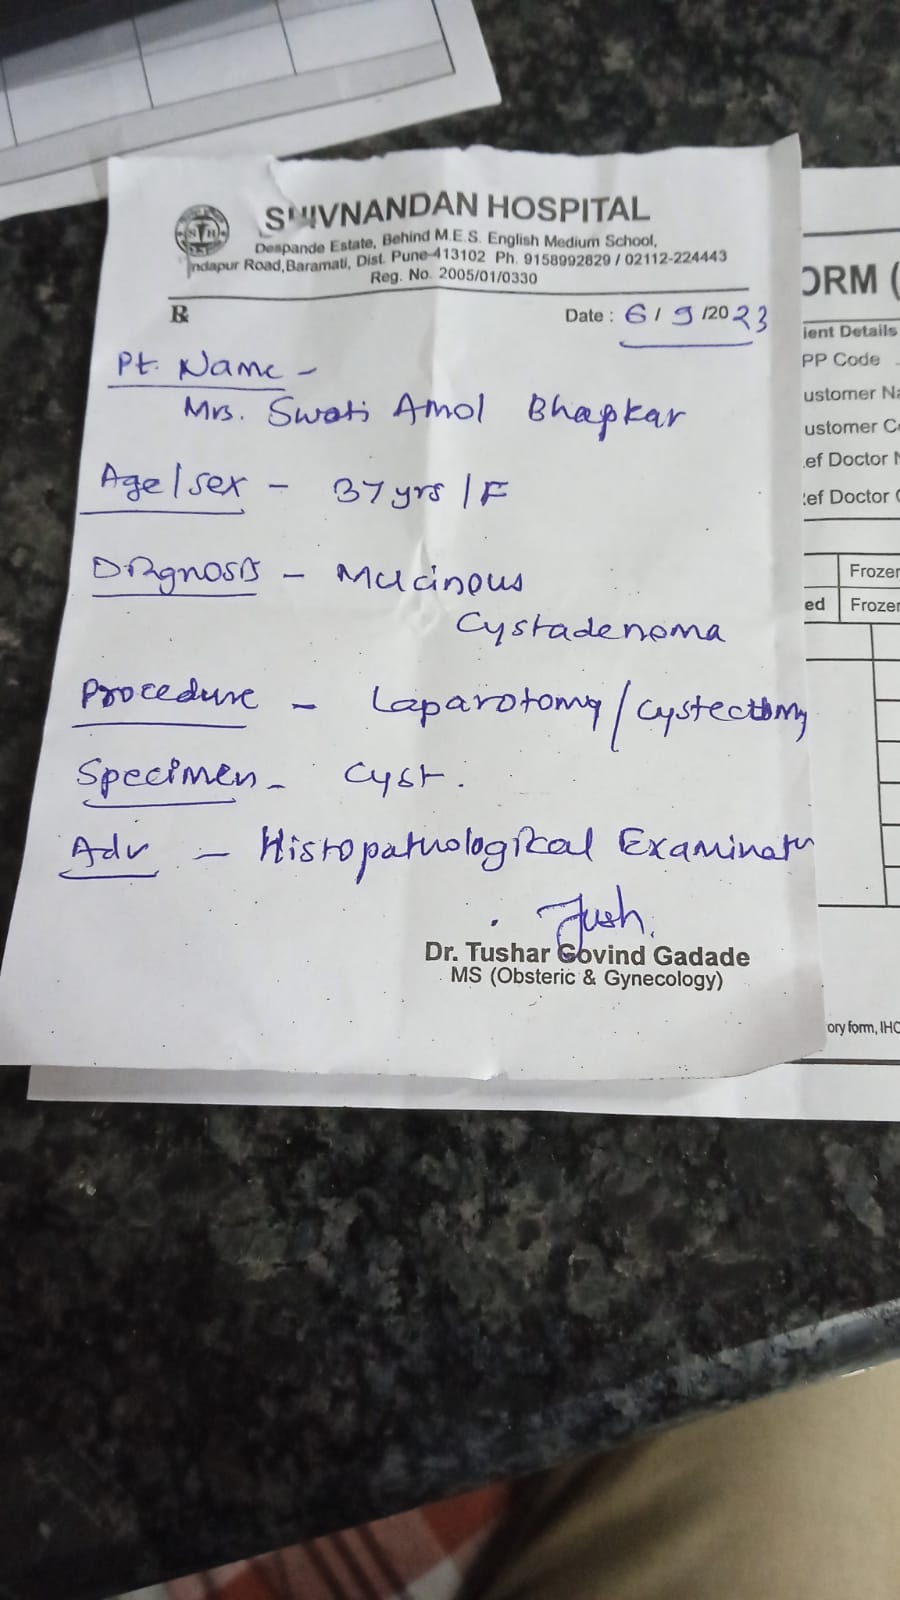 SHIVNANDAN HOSPITAL
Despande Estate, Behind M.E.S. English Medium School,
Indapur Road, Baramati, Dist. Pune-413102 Ph. 9158992829 / 02112-224443
Reg. No. 2005/01/0330
Rx
Date : 6 / 9 /2023
Pt. Name -
Mrs. Swati Amol Bhapkar
Age/sex - 37 yrs / F
Diagnosis - Mucinous
Cystadenoma
Procedure - Laparotomy / Cystectomy
Specimen - Cyst.
Adv - Histopathological Examinatn
Dr. Tushar Govind Gadade
MS (Obsteric & Gynecology)
ORM (
ient Details
PP Code
ustomer Na
ustomer Co
ef Doctor N
ef Doctor C
Frozen
ed Frozen
ory form, IHC